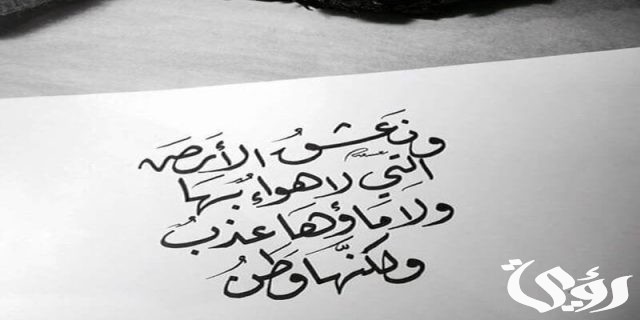 ونَعَشقُ الأرضَ
التي لا هواءٌ بهَا
ولَا مَاؤهَا عذبٌ
ولكنّهَا وَطنُ
رؤية